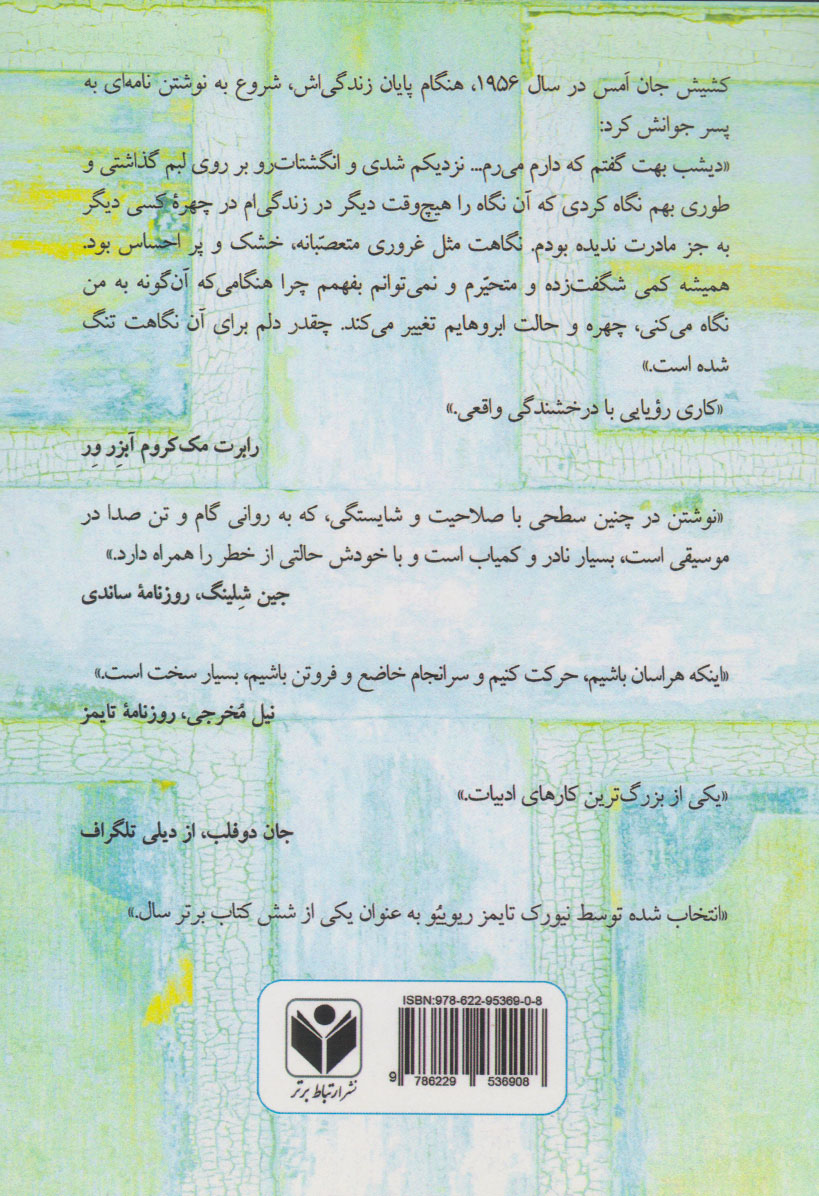 کشیش جان اَمس در سال ۱۹۵۶، هنگام پایان زندگی‌اش، شروع به نوشتن نامه‌ای به
پسر جوانش کرد:
«دیشب بهت گفتم که دارم می‌رم... نزدیکم شدی و انگشتات‌رو بر روی لبم گذاشتی و
طوری بهم نگاه کردی که آن نگاه را هیچ‌وقت دیگر در زندگی‌ام در چهرهٔ کسی دیگر
به جز مادرت ندیده بودم. نگاهت مثل غروری متعصّبانه، خشک و پر احساس بود.
همیشه کمی شگفت‌زده و متحیّرم و نمی‌توانم بفهمم چرا هنگامی‌که آن‌گونه به من
نگاه می‌کنی، چهره و حالت ابروهایم تغییر می‌کند. چقدر دلم برای آن نگاهت تنگ
شده است.»
«کاری رؤیایی با درخشندگی واقعی.»
رابرت مک‌کروم آبزِر وِر
«نوشتن در چنین سطحی با صلاحیت و شایستگی، که به روانی گام و تن صدا در
موسیقی است، بسیار نادر و کمیاب است و با خودش حالتی از خطر را همراه دارد.»
جین شِلینگ، روزنامهٔ ساندی
«اینکه هراسان باشیم، حرکت کنیم و سرانجام خاضع و فروتن باشیم، بسیار سخت است.»
نیل مُخرجی، روزنامهٔ تایمز
«یکی از بزرگ‌ترین کارهای ادبیات.»
جان دوفلب، از دیلی تلگراف
«انتخاب شده توسط نیورک تایمز ریویُو به عنوان یکی از شش کتاب برتر سال.»
ISBN:978-622-95369-0-8
9 786229 536908
نشر ارتباط برتر